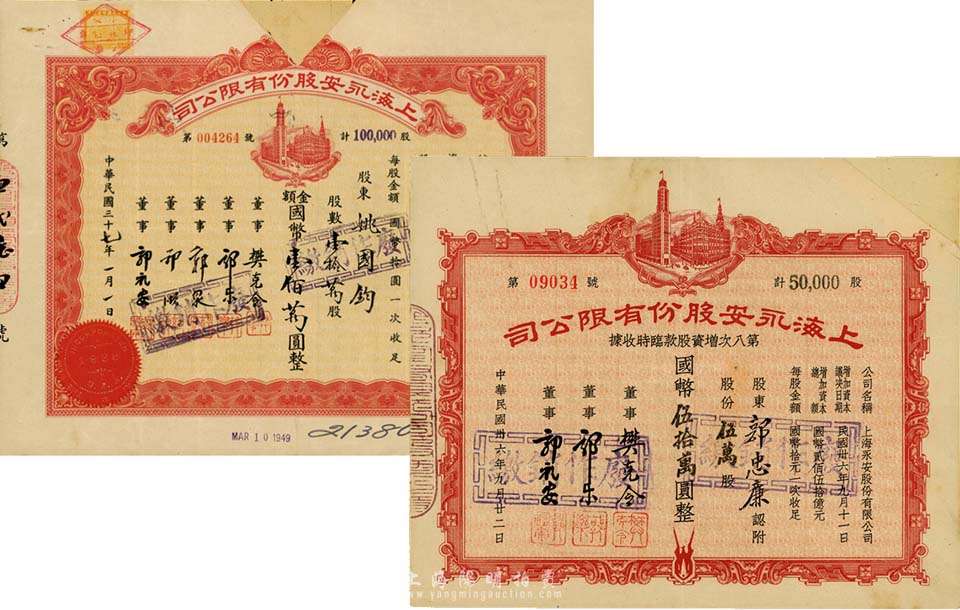 上海永安股份有限公司
第 004264 號
計 100,000 股
每股金額 國幣拾圓一次收足
股東 姚國鈞
股數 壹拾萬股
金額 國幣壹佰萬圓整
董事 樊克令
董事 郭樂
董事 郭泉
董事
董事 郭礼安
中華民國三十七年一月一日
MAR 10 1949
21380
第 09034 號
計 50,000 股
上海永安股份有限公司
第八次增資股款臨時收據
公司名稱 上海永安股份有限公司
增加資本議決日期 民國卅六年九月十一日
增加資本總額 國幣貳佰伍拾億元
每股金額 國幣拾元一次收足
股東 郭忠廉 認附
股份 伍萬 股
國幣伍拾萬圓整
董事 樊克令
董事 郭樂
董事 郭礼安
中華民國卅六年九月廿二日
上海陽明拍賣
www.yangmingauction.com